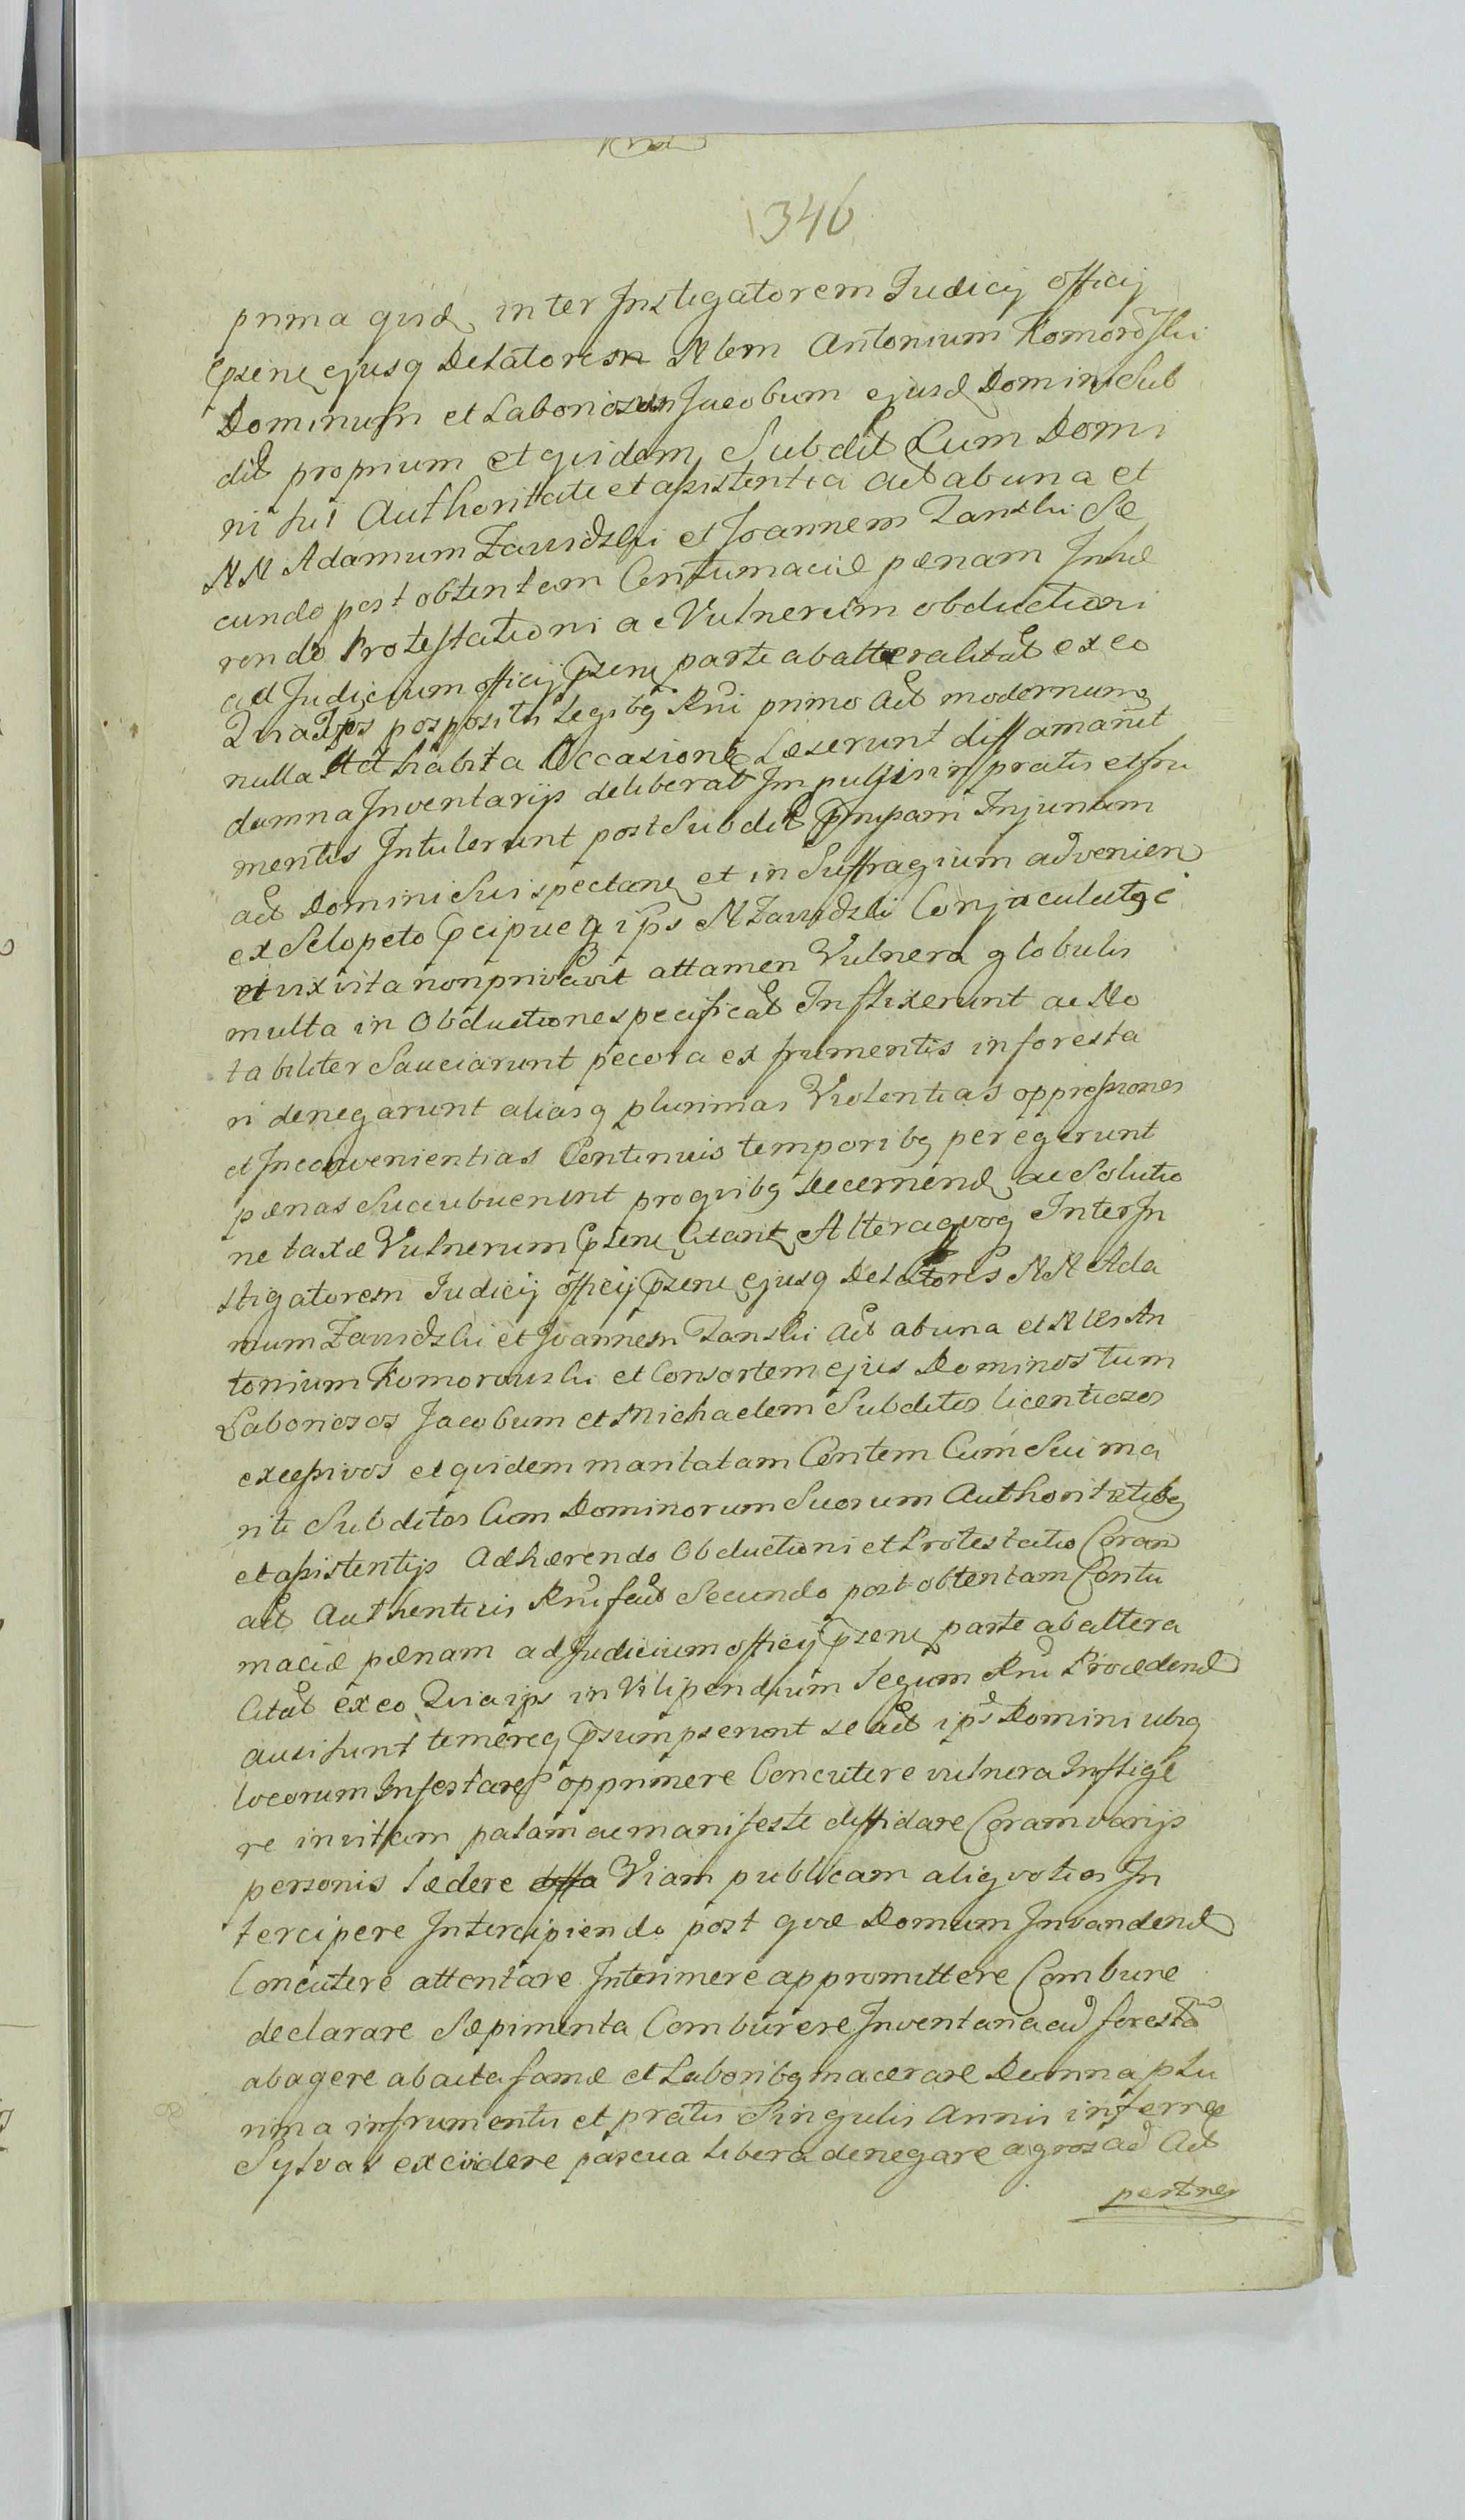 346
prima quid inter Instigatorem Judicij officij
psens ejusq Delatorem Nlem Antonium Komorowski
Dominum et Laboriosum Jacobum ejusd Domini Sub
dit proprium et quidem Subdit Cum Domi
ni sui Authoritate et assistentia Act ab una et
NN Adamum Zawidzki et Joannem Zanski Se
cundo post obtentam Contumaciæ pænam Inhæ
rendo Protestationi ac Vulnerum obductioni
ad Judicium officij psens parte ab altera litat ex eo
Quia Ips posposits Legibg Rni primo Act modernum
nulla Adhabita Occasione Læserunt diffamarut
damna Inventarijs deliberat Impulsis in pratis et fru
mentis Intulerunt post Subdit Injuriam
act Domini Sui spectane et in Suffragium advenien
ex Sclopeto pcipue q ips N Zawidzki Conjaculat
et vix vita non privavit attamen Vulnera globulis
multa in Obductione specificat Inflixerunt ac No
tabiliter Sauciarunt pecora ex frumentis in foresta
ri denegarunt aliasq plurimas Violentias oppressiones
et Inconvenientias Continuis temporibg peregerunt
pænas Succubuerunt pro quibg Decernend ac Solutio
ne taxæ Vulnerum psens Citant Altera quog Inter In
stigatorem Judicij officij psens ejusq Delatores NN Ada
mum Zawidzki et Joannem Zanski Act ab una et Nles An
tonium Komorowski et Consortem ejus Dominos tum
Laboriosos Jacobum et Michaelem Subditos licentiosos
excessivos et quidem maritatam Contem Cum Sui ma
riti Subditos Cum Dominorum Suorum Authoritatibg
et assistentijs Adhærendo Obductioni et Protestatio Coram
act Authenticis Rni fact Secundo post obtentam Contu
maciæ pænam ad Judicium officij psens parte ab altera
Citat ex eo Quia ips in Vilipendium Legum Rni Procedend
ausi sunt temereq psumpserunt se act ips Domini ubiq
locorum Infestare opprimere Concutere vulnera Inflige
re invitam palam ac manifeste diffidare Coram varijs
personis lædere Viam publicam aliquoties In
tercipere Intercipiendo post quæ Domum Invandend
Concutere attentare Interimere appromittere Combure
declarare Sæpimenta Comburere Inventaria ad forest
abagere abacta famæ et Laboribg macerare Damna plu
rima in frumentis et pratis Singulis Annis inferre
Sylvas excidere pascua libera denegare agros ad Act
pertnes